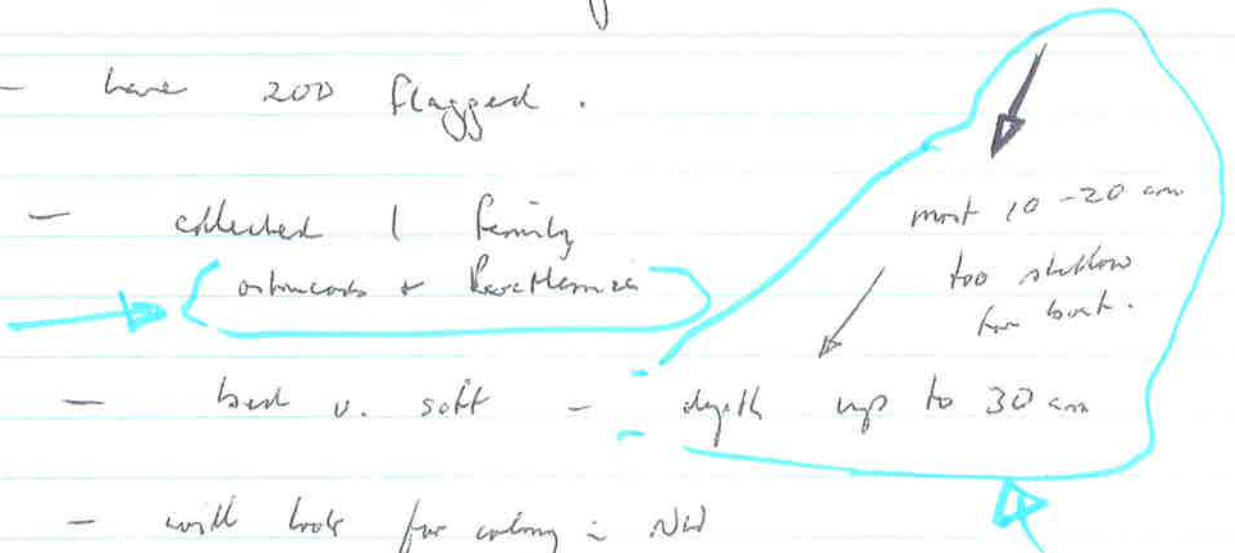 - have 200 flagged.
- collected 1 family
ostracods + Parartemia
most 10-20 cm
too shallow
for boat.
- bed v. soft - depth up to 30 cm
- will look for colony in